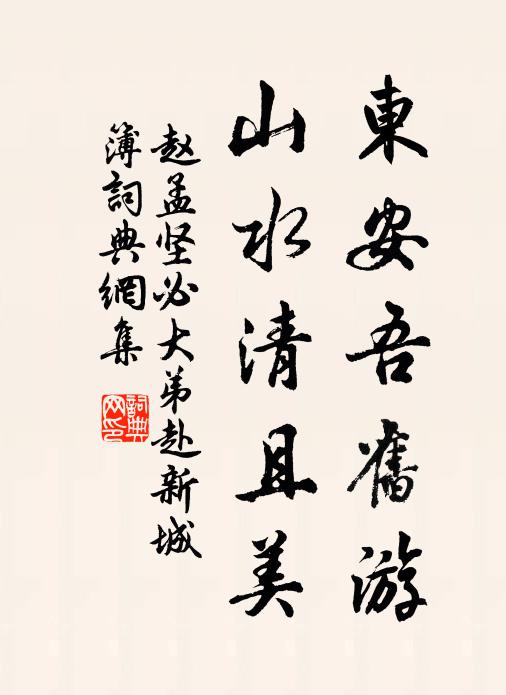 東安吾舊游
山水清且美
赵孟坚必大弟赴新城
簿詞典網集
詞典网印